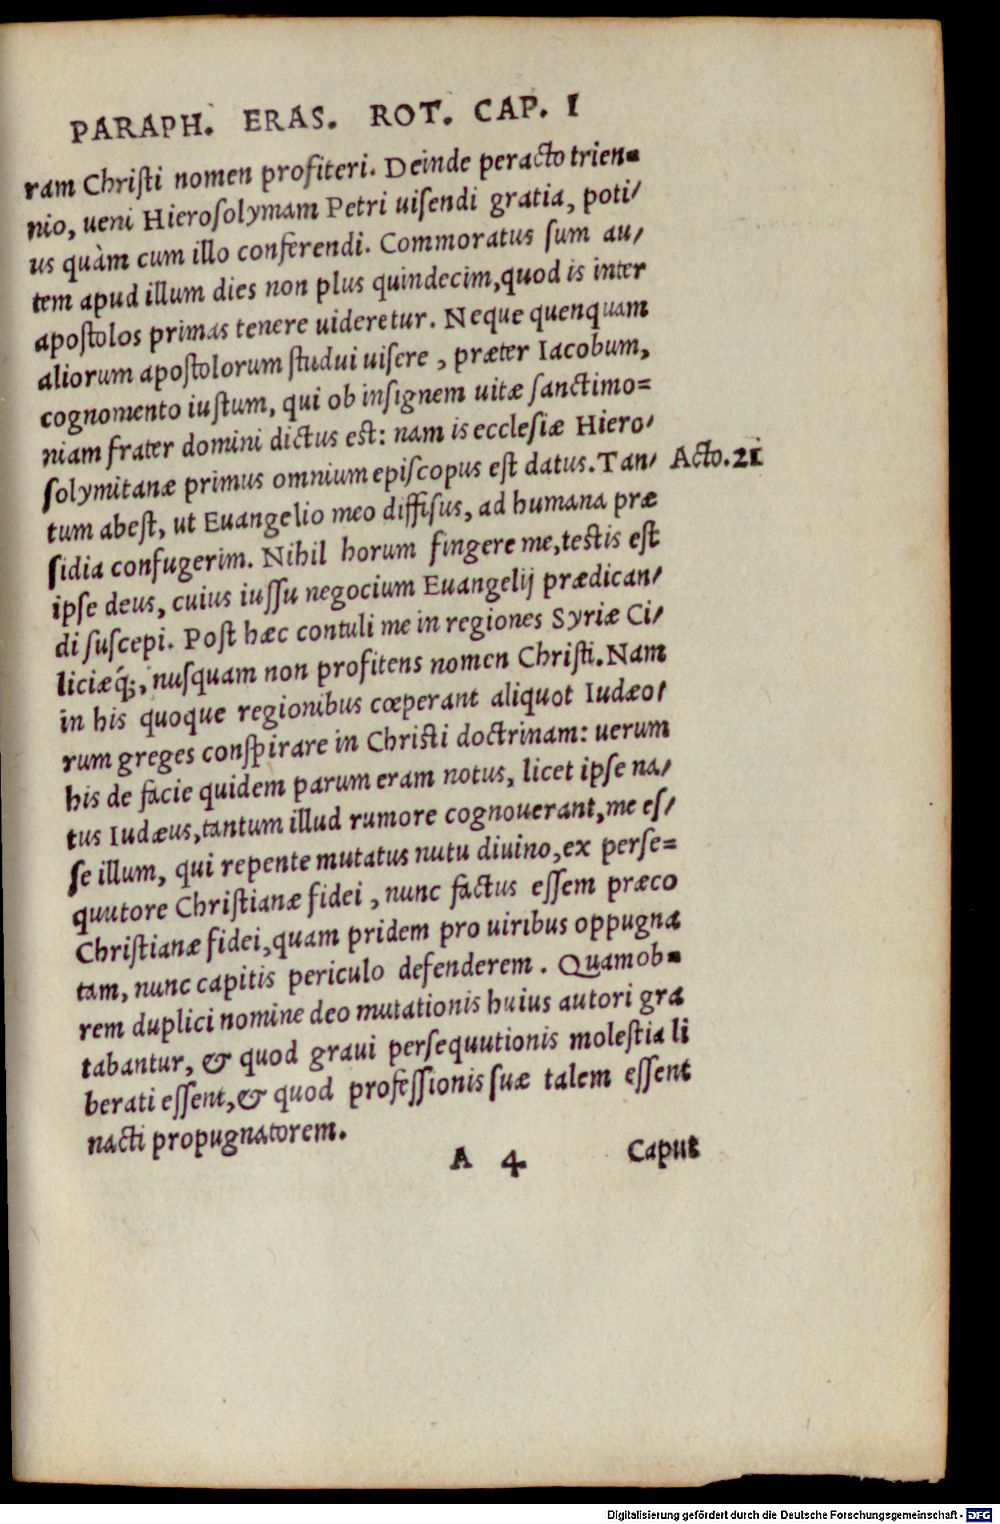 PARAPH. ERAS. ROT. CAP. I
ram Chriſti nomen profiteri. Deinde peracto trien-
nio, ueni Hieroſolymam Petri uiſendi gratia, poti/
us quàm cum illo conferendi. Commoratus ſum au/
tem apud illum dies non plus quindecim, quod is inter
apoſtolos primas tenere uideretur. Neque quenquam
aliorum apoſtolorum ſtudui uiſere, præter Iacobum,
cognomento iuſtum, qui ob inſignem uitæ ſanctimo=
niam frater domini dictus est: nam is eccleſiæ Hiero/
ſolymitanæ primus omnium epiſcopus eſt datus. Tan/ Acto.21
tum abeſt, ut Euangelio meo diffiſus, ad humana præ
ſidia confugerim. Nihil horum fingere me, testis eſt
ipſe deus, cuius iuſſu negocium Euangelij prædican/
di ſuſcepi. Poſt hæc contuli me in regiones Syriæ Ci/
liciæq́;, nuſquam non profitens nomen Chriſti. Nam
in his quoque regionibus cœperant aliquot Iudæo/
rum greges conſpirare in Chriſti doctrinam: uerum
his de facie quidem parum eram notus, licet ipſe na/
tus Iudæus, tantum illud rumore cognouerant, me eſ/
ſe illum, qui repente mutatus nutu diuino, ex perſe=
quutore Chriſtianæ fidei, nunc factus eſſem præco
Chriſtianæ fidei, quam pridem pro uiribus oppugna
tam, nunc capitis periculo defenderem. Quamob-
rem duplici nomine deo mutationis huius autori gra
tabantur, & quod graui perſequutionis moleſtia li
berati eſſent, & quod profeſſionis ſuæ talem eſſent
nacti propugnatorem.
A 4 Caput
Digitalisierung gefördert durch die Deutsche Forschungsgemeinschaft - DFG